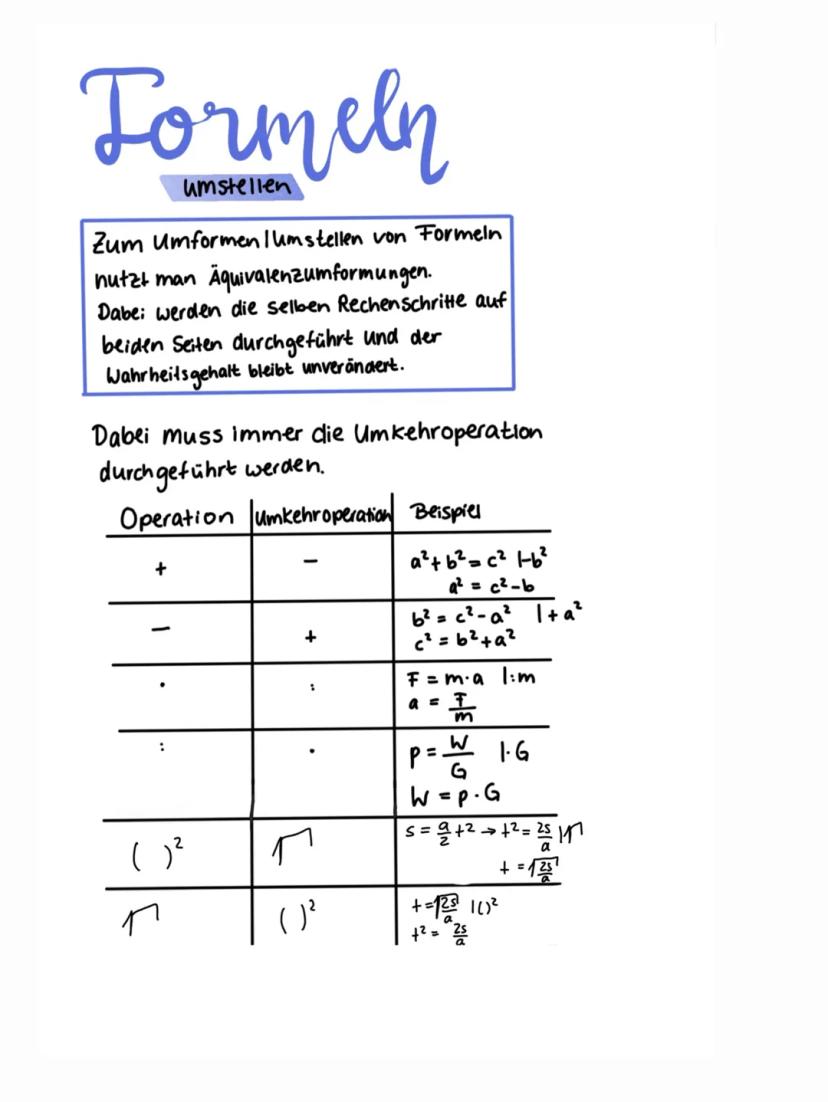 Formeln
umstellen
Zum Umformen/Umstellen von Formeln
nutzt man Äquivalenzumformungen.
Dabei werden die selben Rechenschritte auf
beiden Seiten durchgeführt und der
Wahrheitsgehalt bleibt unverändert.
Dabei muss immer die Umkehroperation
durchgeführt werden.
Operation Umkehroperation Beispiel
+ − a² + b² = c² |-b²
a² = c² - b
− + b² = c² - a² | + a²
c² = b² + a²
· : F = m · a |:m
a = F/m
: · p = W/G | · G
W = p · G
( )² √ s = a/2 t² → t² = 2s/a |√
t = √(2s/a)
√ ( )² t = √(2s/a) |()²
t² = 2s/a